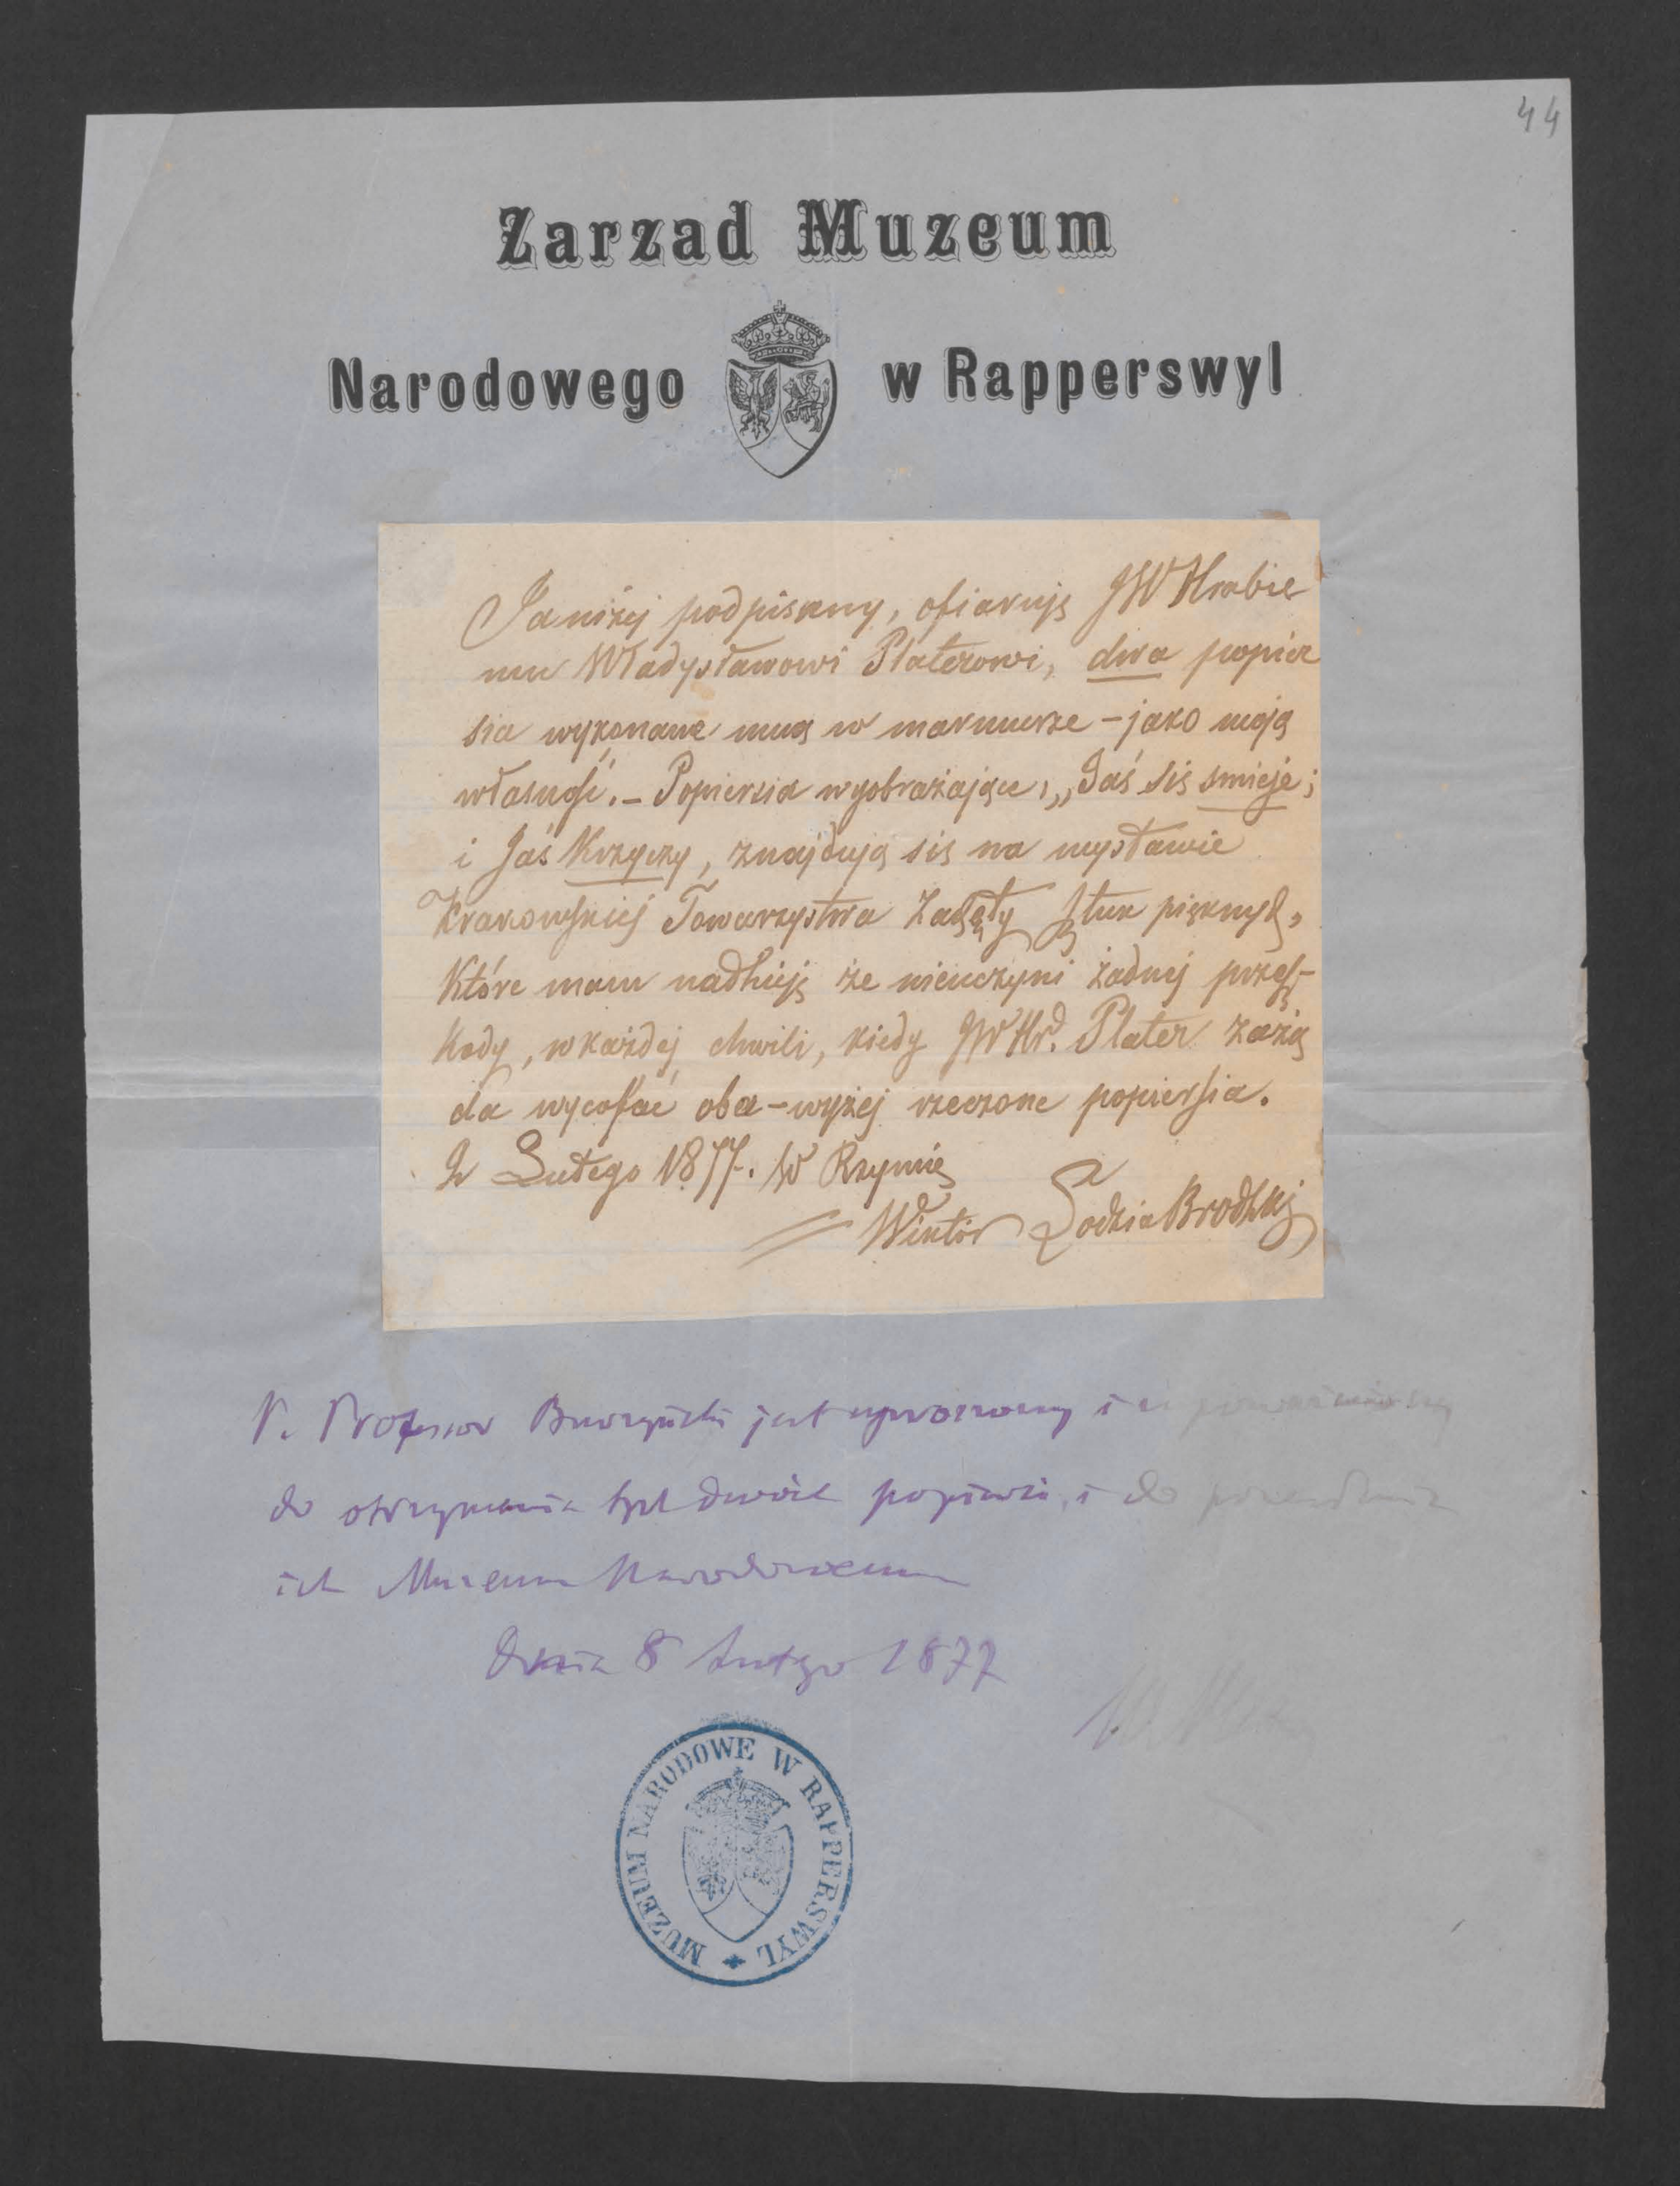 44
Zarzad Muzeum
Narodowego w Rapperswyl
Ja niżej podpisany, ofiaruję JW Hrabie
mu Władysławowi Platerowi, dwa popier
sia wykonane mną w marmurze – jako moją
własność. – Popiersia wyobrażające, „Jaś się smieje;
i Jaś Krzyczy, znajdują się na wystawie
Krakowskiej Towarzystwa Zachęty Sztuk pięknych,
Które mam nadzieję że nieuczyni żadnej przesz-
kody, w każdej chwili, kiedy JW Hr. Plater zażą
da wycofać oba – wyżej rzeczone popiersia.
2 Lutego 1877. W Rzymie
Wiktor Łodzia Brodzki
P. Profesor jest uproszony i
do otrzymania tych dwóch popiersi, i do
ich Muzeum Narodowemu
Dnia 8 Lutego 1877
MUZEUM NARODOWE W RAPPERSWYL